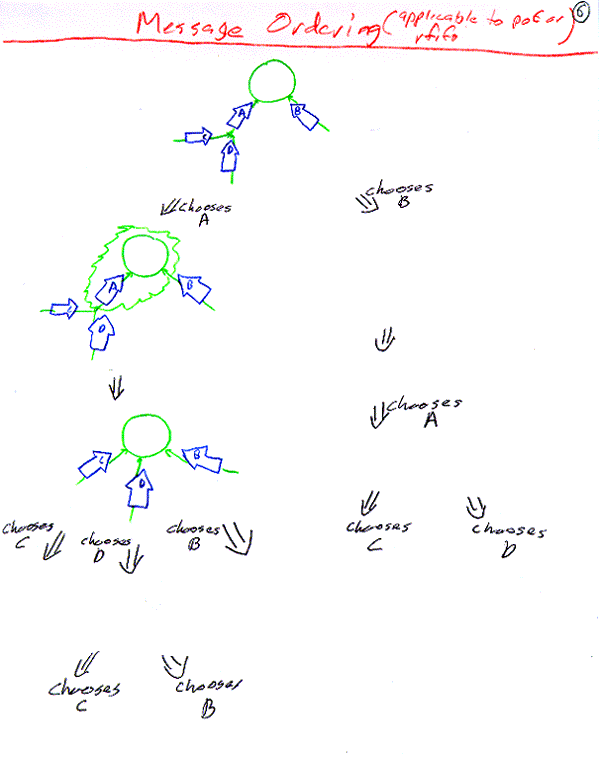 Message Ordering (applicable to pot or rfifo) 6
A
B
C
D
chooses
A
chooses
B
A
B
D
chooses
A
C
B
D
chooses
C
chooses
D
chooses
B
chooses
C
chooses
D
chooses
C
chooses
B